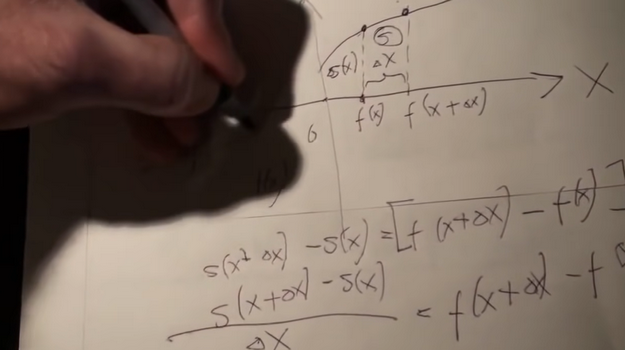 S
S(x) Δx
X
0 f(x) f(x+Δx)
S(x+Δx) - S(x) = [f(x+Δx) - f(x)]
S(x+Δx) - S(x) = f(x+Δx) - f
Δx